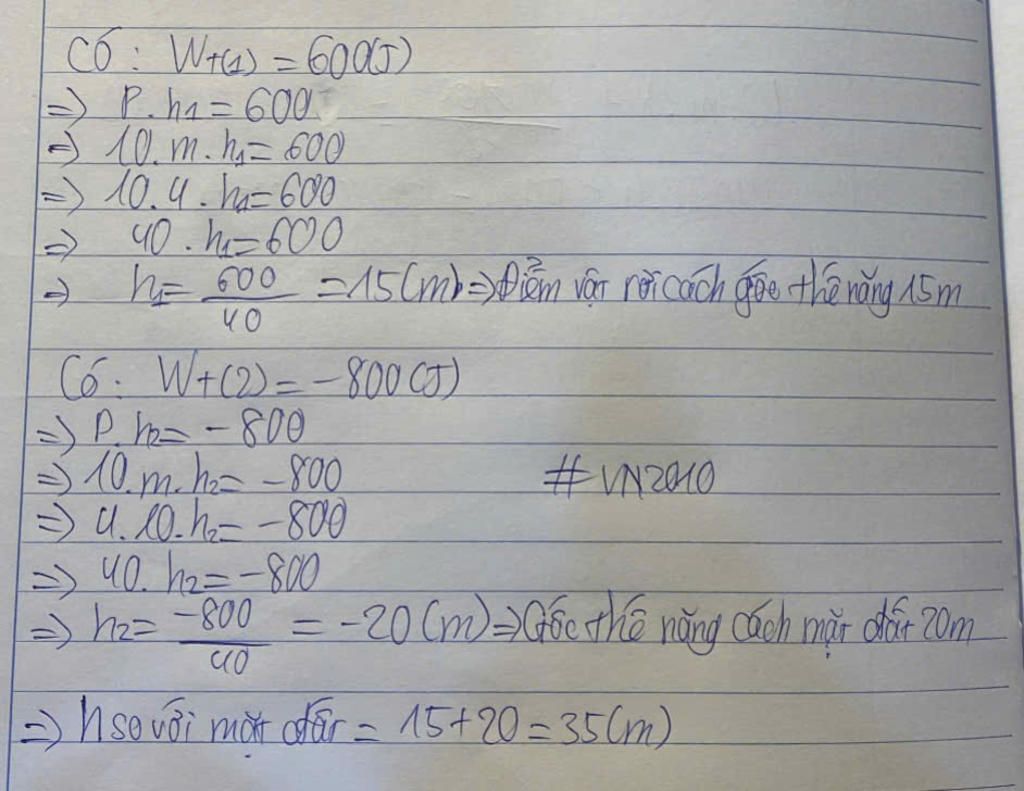 Có: Wt(1) = 600(J)
=> P.h1 = 600
=> 10.m.h1 = 600
=> 10.4.h1 = 600
=> 40.h1 = 600
=> h1 = 600/40 = 15(m) => Điểm vật rơi cách gốc thế năng 15m
Có: Wt(2) = -800(J)
=> P.h2 = -800
=> 10.m.h2 = -800 #VN2010
=> 4.10.h2 = -800
=> 40.h2 = -800
=> h2 = -800/40 = -20(m) => Gốc thế năng cách mặt đất 20m
=> h so với mặt đất = 15+20 = 35(m)